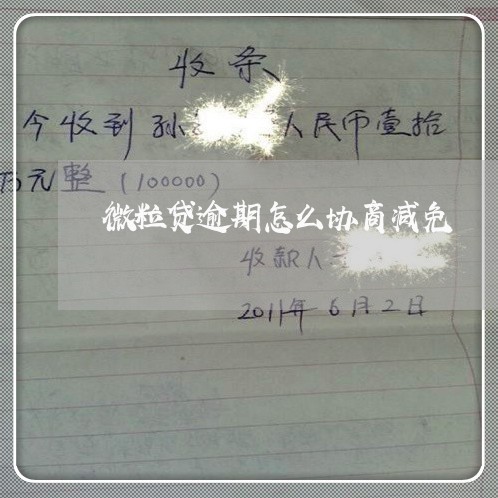 收条
今收到孙 人民币壹拾
万元整（100000）
微粒贷逾期怎么协商减免
收款人：
2011年6月2日